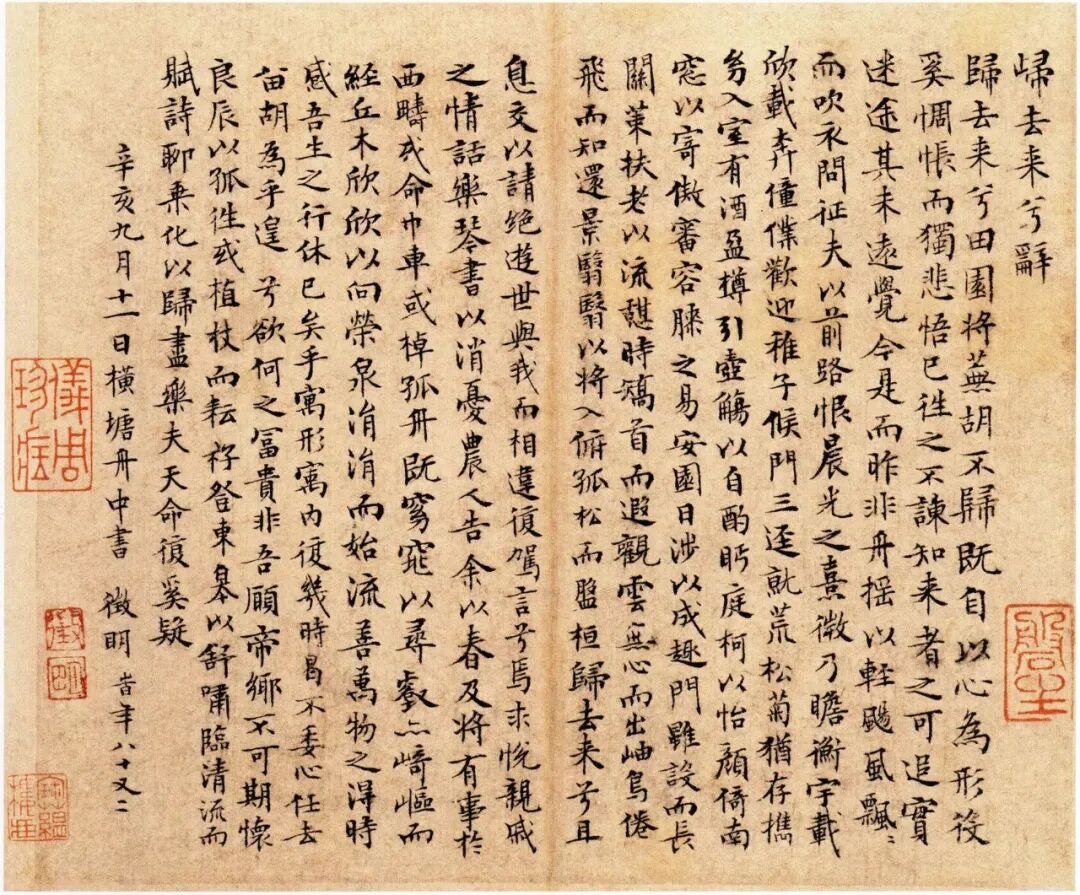 歸去来兮辭
歸去来兮田園将蕪胡不歸既自以心為形役
奚惆悵而獨悲悟已往之不諫知来者之可追實
迷途其未遠覺今是而昨非舟摇以輕颺風飄〻
而吹衣問征夫以前路恨晨光之熹微乃瞻衡宇載
欣載奔僮僕歡迎稚子候門三逕就荒松菊猶存携
㓜入室有酒盈樽引壺觴以自酌眄庭柯以怡顔倚南
窓以寄傲審容膝之易安園日涉以成趣門雖設而長
關策扶老以流憇時矯首而遐觀雲無心而出岫鳥倦
飛而知還景翳翳以将入俯孤松而盤桓歸去来兮且
息交以請绝遊世與我而相違復駕言兮焉求恱親戚
之情話樂琴書以消憂農人告余以春及将有事於
西疇或命巾車或棹孤舟既窈窕以尋壑亦崎嶇而
經丘木欣欣以向榮泉涓涓而始流善萬物之得時
感吾生之行休已矣乎寓形寓内復幾時曷不委心任去
留胡為乎遑兮欲何之冨貴非吾願帝鄉不可期懷
良辰以孤往或植杖而耘耔登東皋以舒嘯臨清流而
賦詩聊乗化以歸盡樂夫天命復奚疑
辛亥九月十一日橫塘舟中書 徵明 旹年八十又二
儀周珍藏
徵明